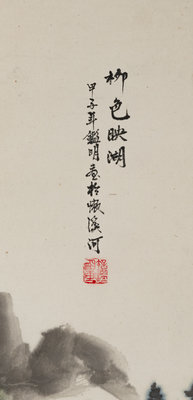 柳色映湖
甲子年鑑明畫於嗽溪河